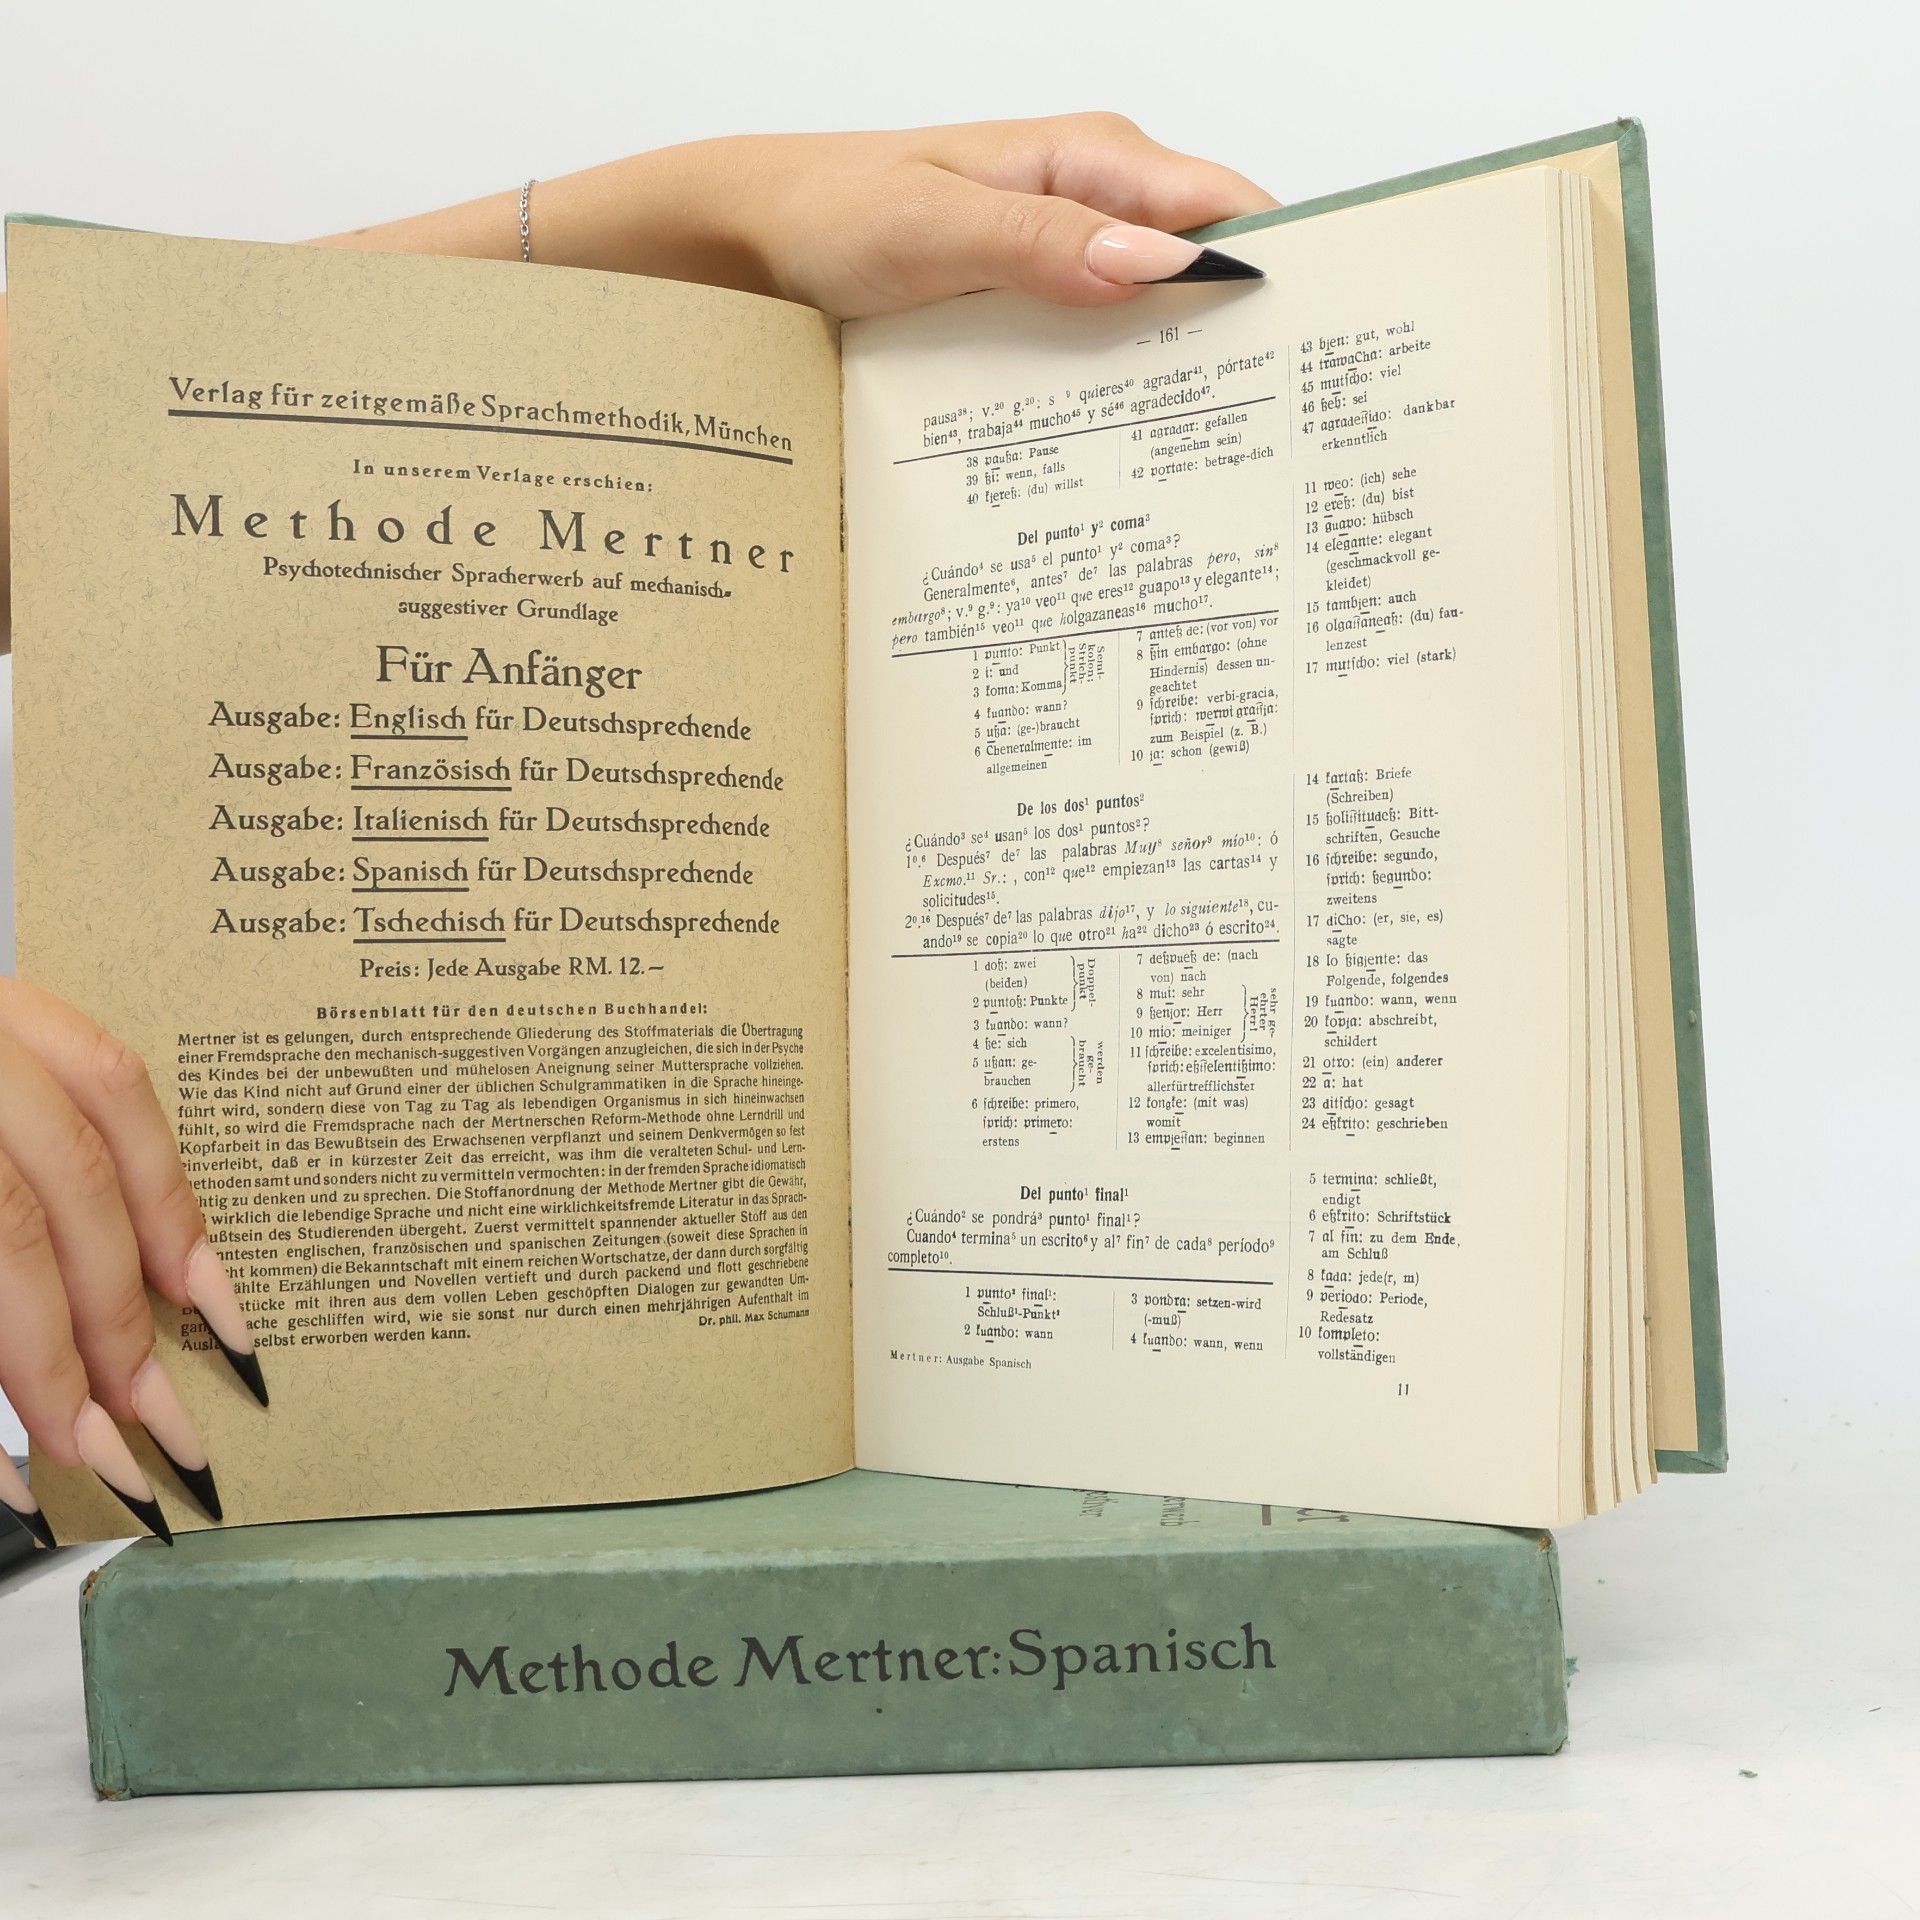 Verlag für zeitgemäße Sprachmethodik, München
In unserem Verlage erschien:
Methode Mertner
Psychotechnischer Spracherwerb auf mechanisch-
suggestiver Grundlage
Für Anfänger
Ausgabe: Englisch für Deutschsprechende
Ausgabe: Französisch für Deutschsprechende
Ausgabe: Italienisch für Deutschsprechende
Ausgabe: Spanisch für Deutschsprechende
Ausgabe: Tschechisch für Deutschsprechende
Preis: Jede Ausgabe RM. 12.—
Börsenblatt für den deutschen Buchhandel:
Mertner ist es gelungen, durch entsprechende Gliederung des Stoffmaterials die Übertragung
einer Fremdsprache den mechanisch-suggestiven Vorgängen anzugleichen, die sich in der Psyche
des Kindes bei der unbewußten und mühelosen Aneignung seiner Muttersprache vollziehen.
Wie das Kind nicht auf Grund einer der üblichen Schulgrammatiken in die Sprache hineinge-
führt wird, sondern diese von Tag zu Tag als lebendigen Organismus in sich hineinwachsen
fühlt, so wird die Fremdsprache nach der Mertnerschen Reform-Methode ohne Lerndrill und
Kopfarbeit in das Bewußtsein des Erwachsenen verpflanzt und seinem Denkvermögen so fest
einverleibt, daß er in kürzester Zeit das erreicht, was ihm die veralteten Schul- und Lern-
ethoden samt und sonders nicht zu vermitteln vermochten: in der fremden Sprache idiomatisch
htig zu denken und zu sprechen. Die Stoffanordnung der Methode Mertner gibt die Gewähr,
wirklich die lebendige Sprache und nicht eine wirklichkeitsfremde Literatur in das Sprach-
ußtsein des Studierenden übergeht. Zuerst vermittelt spannender aktueller Stoff aus den
nntesten englischen, französischen und spanischen Zeitungen (soweit diese Sprachen in
cht kommen) die Bekanntschaft mit einem reichen Wortschatze, der dann durch sorgfältig
ählte Erzählungen und Novellen vertieft und durch packend und flott geschriebene
stücke mit ihren aus dem vollen Leben geschöpften Dialogen zur gewandten Um-
gan ache geschliffen wird, wie sie sonst nur durch einen mehrjährigen Aufenthalt im
Ausla selbst erworben werden kann.
Dr. phil. Max Schumann
— 161 —
pausa³⁸; v.²⁰ g.²⁰: s ⁹ quieres⁴⁰ agradar⁴¹, pórtate⁴²
bien⁴³, trabaja⁴⁴ mucho⁴⁵ y sé⁴⁶ agradecido⁴⁷.
38 paußa: Pause
39 ßi: wenn, falls
40 kjereß: (du) willst
41 agradar: gefallen
(angenehm sein)
42 portate: betrage-dich
43 bjen: gut, wohl
44 trawaCha: arbeite
45 mutscho: viel
46 ßeh: sei
47 agradeßido: dankbar
erkenntlich
Del punto¹ y² coma³
¿Cuándo⁴ se usa⁵ el punto¹ y² coma³?
Generalmente⁶, antes⁷ de⁷ las palabras pero, sin⁸
embargo⁸; v.⁹ g.⁹: ya¹⁰ veo¹¹ que eres¹² guapo¹³ y elegante¹⁴;
pero también¹⁵ veo¹¹ que holgazaneas¹⁶ mucho¹⁷.
1 punto: Punkt
2 i: und
3 koma: Komma
Semi-
kolon:
Strich-
punkt
4 kuando: wann?
5 ußa: (ge-)braucht
6 Cheneralmente: im
allgemeinen
7 anteß de: (vor von) vor
8 ßin embargo: (ohne
Hindernis) dessen un-
geachtet
9 schreibe: verbi-gracia,
sprich: werwi graßja:
zum Beispiel (z. B.)
10 ja: schon (gewiß)
11 weo: (ich) sehe
12 ereß: (du) bist
13 guapo: hübsch
14 elegante: elegant
(geschmackvoll ge-
kleidet)
15 tambjen: auch
16 olgaßaneaß: (du) fau-
lenzest
17 mutscho: viel (stark)
De los dos¹ puntos²
¿Cuándo³ se⁴ usan⁵ los dos¹ puntos²?
1⁰.⁶ Después⁷ de⁷ las palabras Muy⁸ señor⁹ mío¹⁰: ó
Excmo.¹¹ Sr.: , con¹² que¹² empiezan¹³ las cartas¹⁴ y
solicitudes¹⁵.
2⁰.¹⁶ Después⁷ de⁷ las palabras dijo¹⁷, y lo siguiente¹⁸, cu-
ando¹⁹ se copia²⁰ lo que otro²¹ ha²² dicho²³ ó escrito²⁴.
1 doß: zwei
(beiden)
2 puntoß: Punkte
Doppel-
punkt
3 kuando: wann?
4 ße: sich
5 ußan: ge-
brauchen
werden
ge-
braucht
6 schreibe: primero,
sprich: primero:
erstens
7 deßpueß de: (nach
von) nach
8 mui: sehr
9 ßenjor: Herr
10 mio: meiniger
sehr ge-
ehrter
Herr!
11 schreibe: excelentisimo,
sprich: eßßelentißimo:
allerfürtrefflichster
12 konke: (mit was)
womit
13 empjeßan: beginnen
14 kartaß: Briefe
(Schreiben)
15 ßolißitudeß: Bitt-
schriften, Gesuche
16 schreibe: segundo,
sprich: ßegundo:
zweitens
17 diCho: (er, sie, es)
sagte
18 lo ßigjente: das
Folgende, folgendes
19 kuando: wann, wenn
20 kopja: abschreibt,
schildert
21 otro: (ein) anderer
22 a: hat
23 ditscho: gesagt
24 eßkrito: geschrieben
Del punto¹ final¹
¿Cuándo² se pondrá³ punto¹ final¹?
Cuando⁴ termina⁵ un escrito⁶ y al⁷ fin⁷ de cada⁸ período⁹
completo¹⁰.
1 punto² final¹:
Schluß¹-Punkt²
2 kuando: wann
3 pondra: setzen-wird
(-muß)
4 kuando: wann, wenn
5 termina: schließt,
endigt
6 eßkrito: Schriftstück
7 al fin: zu dem Ende,
am Schluß
8 kada: jede(r, m)
9 periodo: Periode,
Redesatz
10 kompleto:
vollständigen
Mertner: Ausgabe Spanisch
11
Methode Mertner: Spanisch